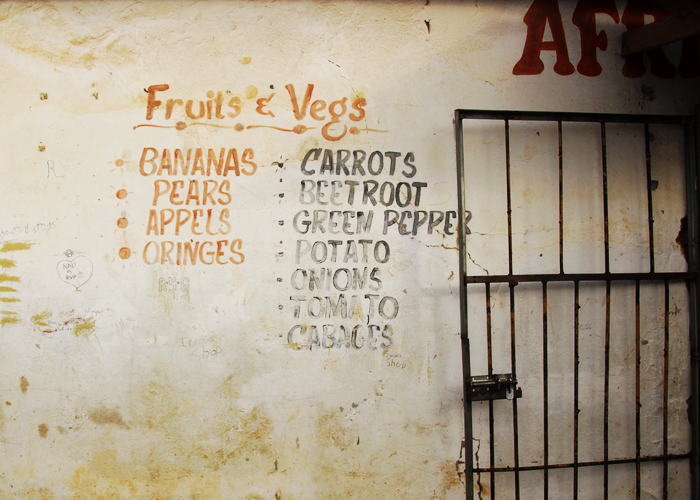 AFRI
Fruits & Vegs
BANANAS
PEARS
APPELS
ORINGES
CARROTS
BEETROOT
GREEN PEPPER
POTATO
ONIONS
TOMATO
CABAGES
Shop